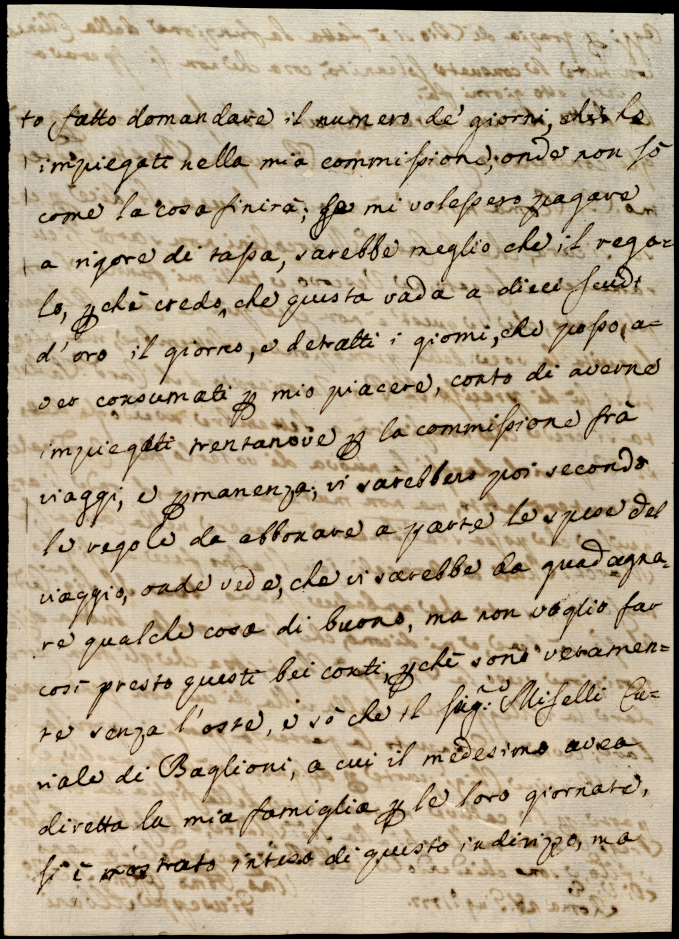 to fatto domandare il numero de giorni, che ho
impiegati nella mia commissione, onde non sò
come la cosa finirà; se mi volessero pagare
a rigore di tassa, sarebbe meglio che il rega-
lo, pchè credo, che questa vada a dieci scudi
d'oro il giorno, e detratti i giorni, che posso a-
ver consumati p mio piacere, conto di averne
impiegati trentanove p la commissione frà
viaggi, e pmanenza; vi sarebbero poi secondo
le regole da abbonare a parte le spese del
viaggio, onde vede, che vi sarebbe da guadagna-
re qualche cosa di buono, ma non voglio far
così presto questi bei conti, pchè sono veramen=
te senza l'oste, e sò che il Sig.r Miselli Cu-
riale di Baglioni, a cui il medesimo avea
diretta la mia famiglia p le loro giornate,
si è mostrato inteso di questo indirizzo, ma